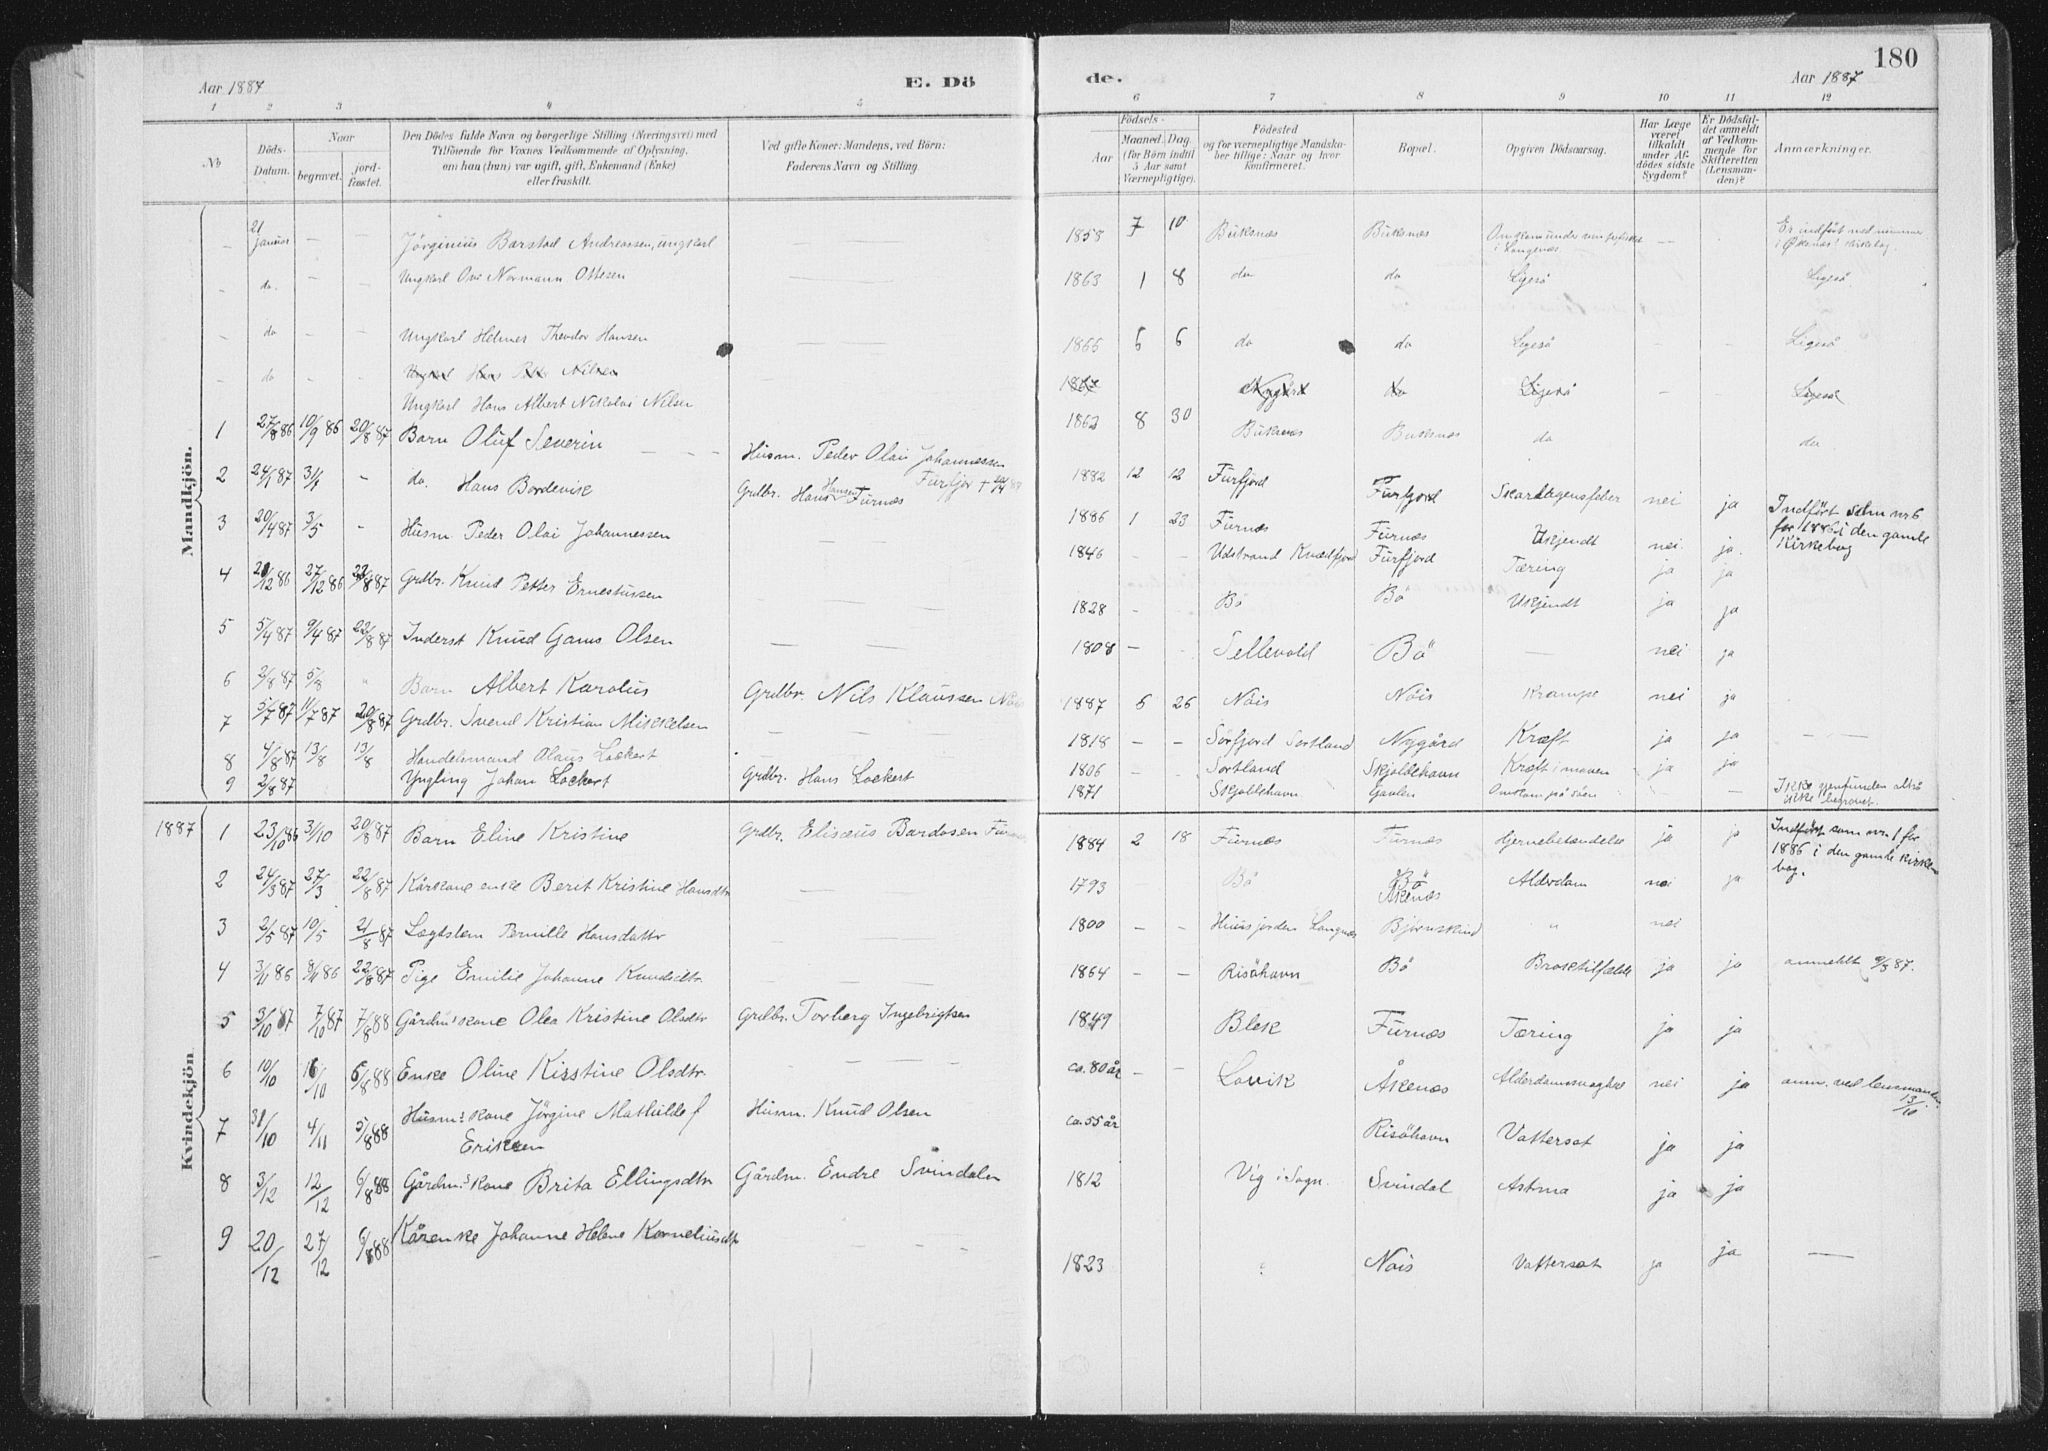 180
Aar 1887 E. Dö de. Aar 1887
1 2 3 4 5 6 7 8 9 10 11 12
No
Döds-Datum.
Naar
begravet.
jord-fæstet.
Den Dödes fulde Navn og borgerlige Stilling (Næringsvei) med
Tilföiende for Voxnes Vedkommende af Oplysning,
om han (hun) var ugift, gift, Enkemand (Enke)
eller fraskilt.
Ved gifte Koner: Mandens, ved Börn:
Faderens Navn og Stilling.
Födsels-
Aar
Maaned. Dag.
(for Börn indtil
5 Aar samt
Værnepligtige).
Födested
og for værnepligtige Mandska-
ber tillige: Naar og hvor
konfirmeret.
Bopæl.
Opgiven Dödsaarsag.
Har Læge
været
tilkaldt
under Af-
dödes sidste
Sygdom?
Er Dödsfal-
det anmeldt
af Vedkom-
mende for
Skifteretten
(Lensman-
den)?
Anmærkninger.
Mandkjön.
- 21 januar - - Jörginius Barstad Andreassen, ungkarl 1858 7 10 Buksnæs Buksnæs i Langenæs. - Er indfört med nummer i Øksnæs' kirkebog.
- do. - - Ungkarl Ove Normann Ottesen 1863 1 8 do do Ligeså Ligeså
- do - - Ungkarl Helmer Theodor Hansen 1866 6 6 do do Ligeså - - Ligeså
- do - - Ungkarl Hans Petter Nilsen 1867 Nygård do Ligeså - Ligeså
Ungkarl Hans Albert Nikolai Nilsen 1862 8 30 Buksnæs Buksnæs do do
1 27/8 86 10/9 86 20/8 87 Barn Oluf Severin Husm. Peder Olai Johannessen Furfjor 1882 12 12 Furfjord Furfjord Skarlagensfeber nei ja Indfört som nr 6 for 1886 i den gamle Kirkebog
2 24/1 87 31/1 - do. Hans Bordevik Grdbr. Hans Hansen Furnæs 1886 1 23 Furnæs Furnæs Ukjendt nei. ja.
3 20/4 87 3/5 - Husm Peder Olai Johannessen 1846 - - Udstrand Kvædfjord Furfjord Tæring ja ja
4 21/12 86 27/12 86 22/8 87 Grdbr. Knud Petter Ernestussen 1828 - Bö Bö Ukjendt ja ja
5 5/4 87 9/4 87 22/8 87 Inderst Knud Gams Olsen 1808 - - Sellevold Bö - nei ja
6 2/8 87 5/8 " Barn Albert Karolus Grdbr Nils Klaussen Nöis 1887 6 26 Nöis Nöis Krampe nei ja
7 5/7 87 11/7 87 20/8 87 Grdbr. Svend Kristian Mikkelsen 1818 - - Sörfjord Sortland Nygård Kræft ja ja - -
8 4/8 87 13/8 13/8 Handelsmand Olaus Lockert 1806 - - Sortland Skjoldehavn Kræft i maven ja ja
9 2/8 87 Yngling Johan Lockert Grdbr. Hans Lockert 1871 Skjoldehavn Gavlen Omkom på söen - - Ikke gjenfunden altså ikke begravet.
Kvindekjön
1887 1 23/10 86 3/10 20/8 87 Barn Eline Kristine Grdbr. Elisæus Bardosen Furnæs 1884 2 18 Furnæs Furnæs Hjernebetændelse ja ja Indfört som nr. 1 for 1886 i den gamle kirkebog.
2 24/3 87 27/3 22/8 87 Kårkone enke Berit Kristine Hansdtr 1793 Bö Bö Åkenæs Alderdom nei ja
3 2/5 87 10/5 21/8 87 Lægtslem Pernille Hansdattr 1800 - - Huusjorden Langnæs Bjørnskind " nei
4 3/11 86 8/11 86 22/8 87 Pige Emilie Johanne Knudsdtr 1864 - - Risöhavn Bö Broktilfælde ja ja anmeldt 9/3 87.
5 3/10 87 7/10 87 7/8 88 Gårdm's kone Olea Kristine Olsdtr Grdbr. Torberg Ingebrigtsen 1849 Blek Furnæs Tæring ja ja
6 10/10 16/10 6/8 88 Enke Oline Kirstine Olsdtr - - - ca. 80 år - - Lovik Åkenæs Alderdomssvaghed nei ja anm. ved lensmanden 13/10
7 31/10 4/11 5/8 88 Husm's kone Jörgine Mathilde f Eriksen Husm. Knud Olsen ca. 55 år Risöhavn Vattersot ja ja
8 3/12 12/12 6/8 88 Gårdm.'s kone Brita Ellingsdtr Gårdm. Endre Svindalen 1812 Vig i Sogn. Svindal Astma ja ja
9 20/12 27/12 6/8 88 Kårenke Johanne Helene Korneliusdtr 1823 Nöis Vattersot ja ja -